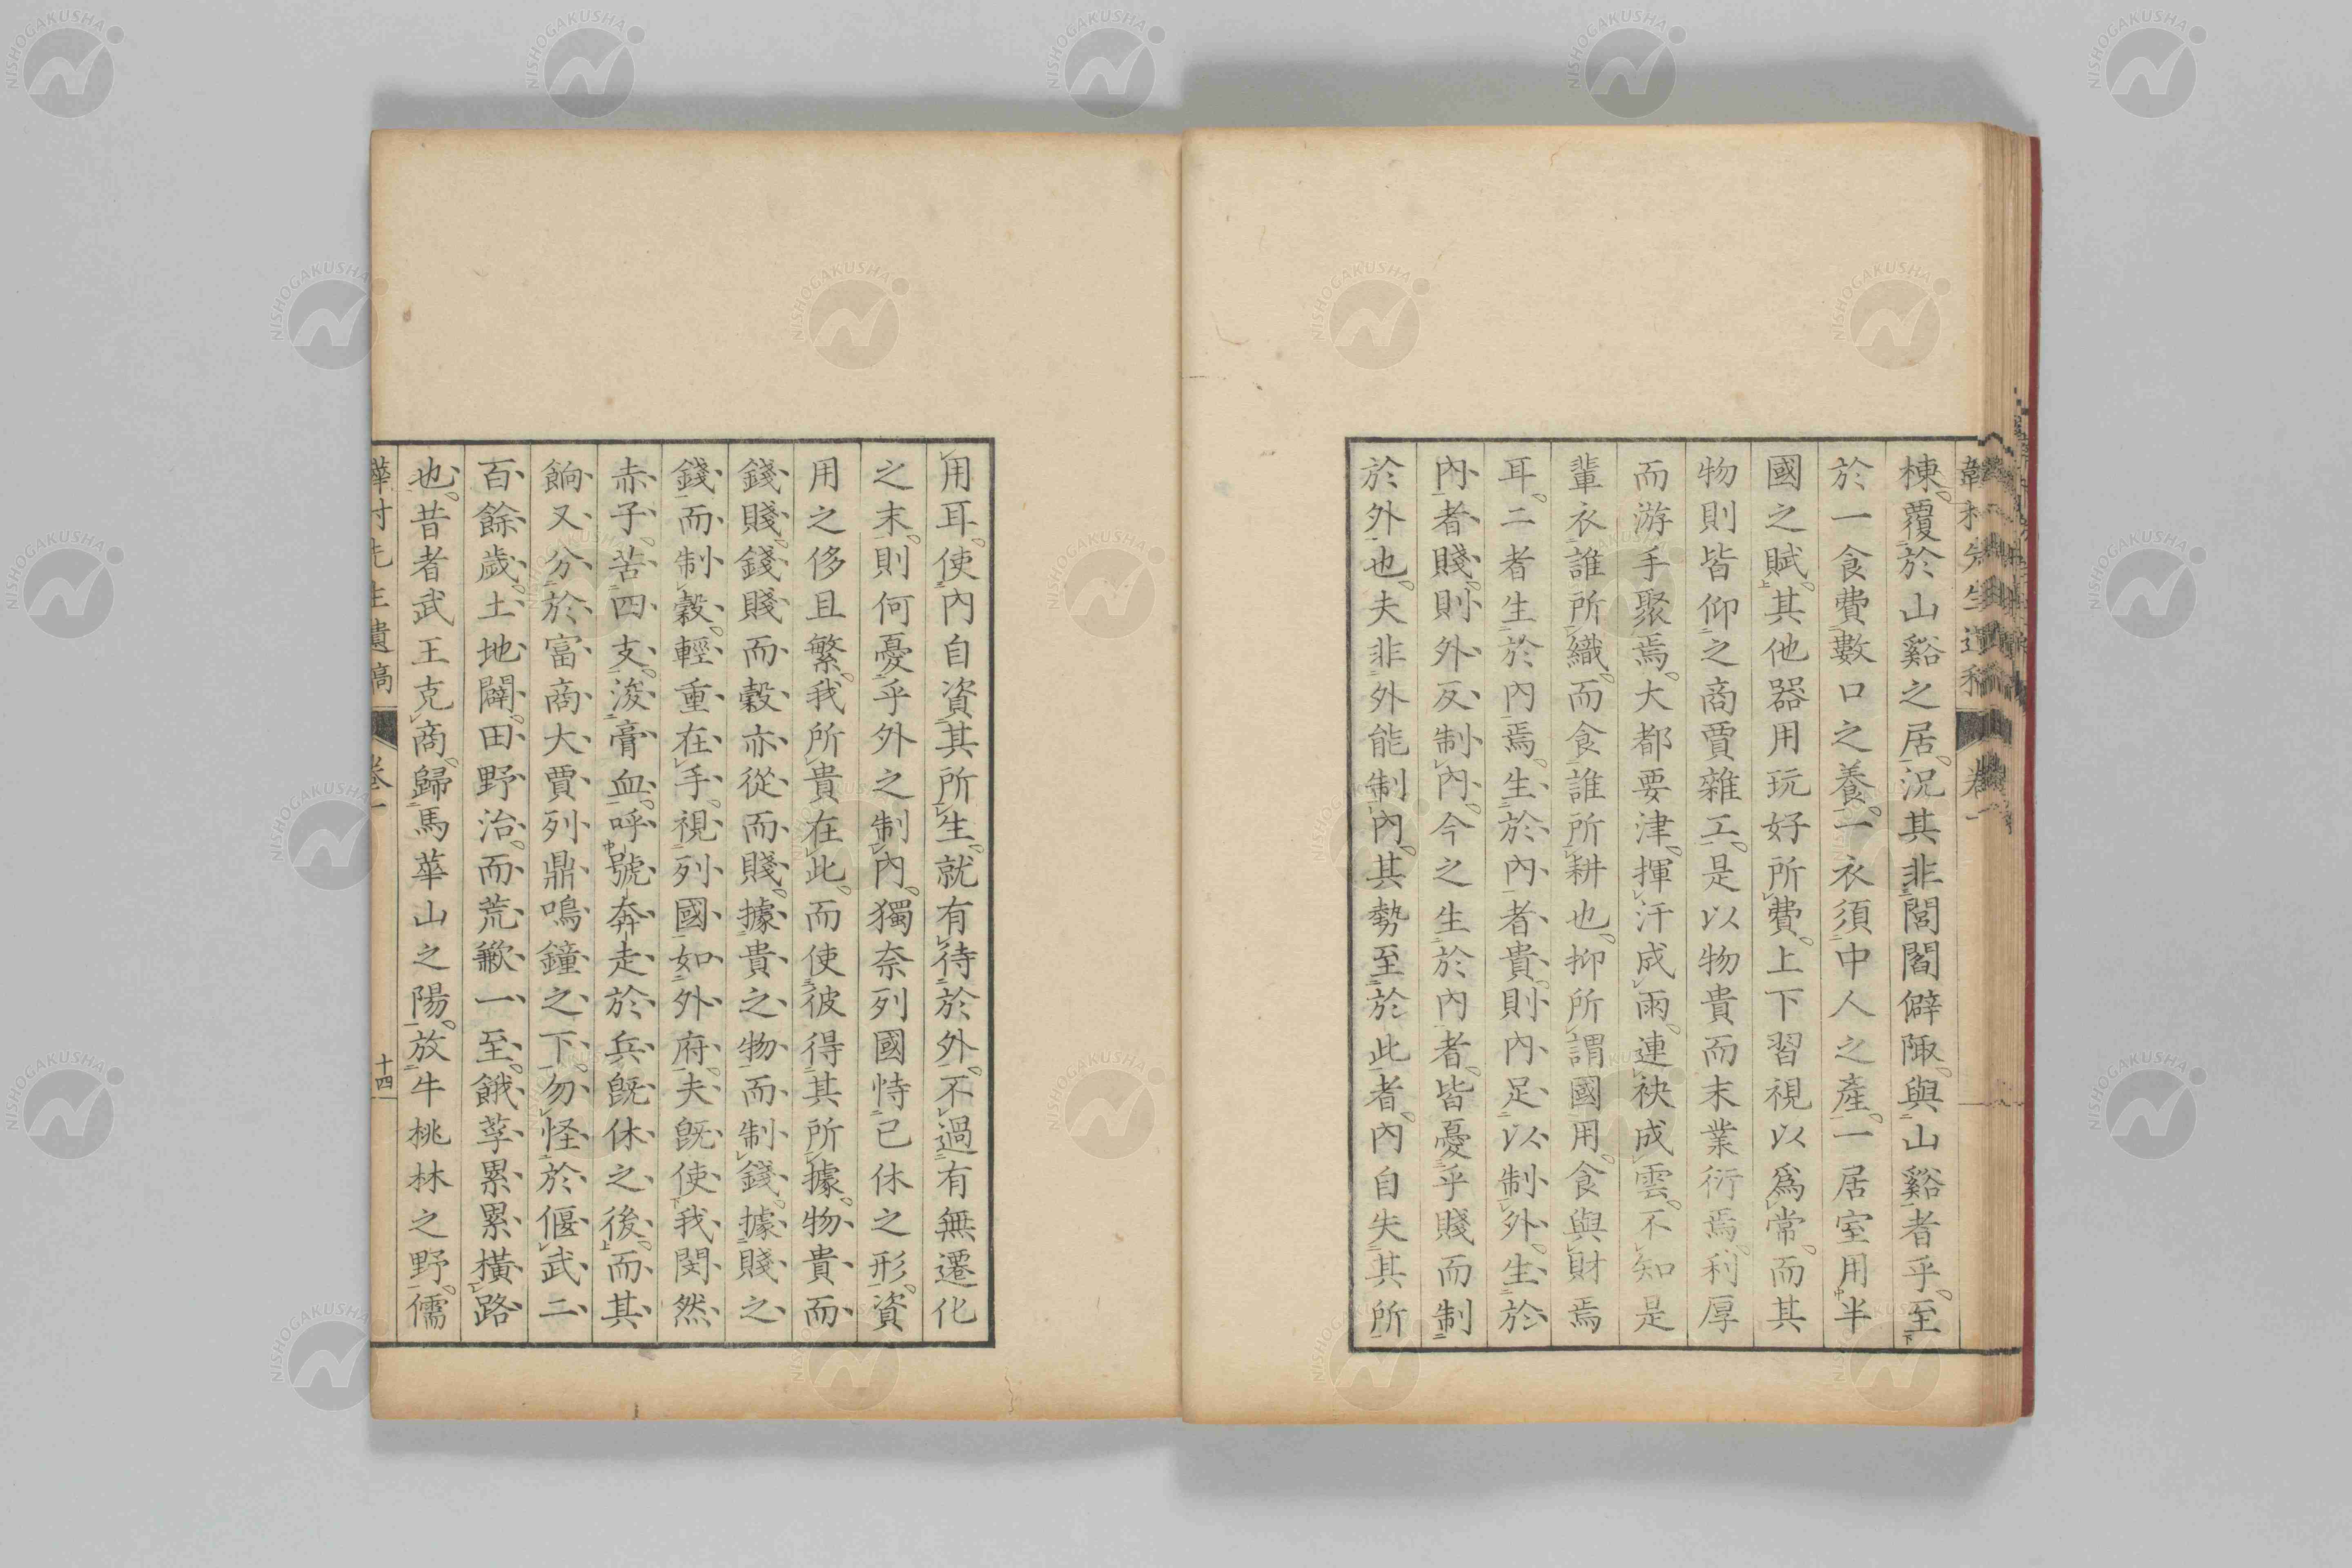 棟。覆於山谿之居。況其非閭閻僻陬。與山谿者乎。至
於一食費數口之養。一衣須中人之產。一居室用半
國之賦。其他器用玩好所費。上下習視以爲常。而其
物則皆仰之商賈雜工。是以物貴而末業衍焉。利厚
而游手聚焉。大都要津。揮汗成雨。連袂成雲。不知是
輩衣誰所織。而食誰所耕也。抑所謂國用。食與財焉
耳。二者生於內焉。生於內者貴。則內足以制外。生於
內者賤。則外反制內。今之生於內者。皆憂乎賤而制
於外也。夫非外能制內。其勢至於此者。內自失其所
用耳。使內自資其所生。就有待於外。不過有無遷化
之末。則何憂乎外之制內。獨奈列國恃已休之形。資
用之侈且繁。我所貴在此。而使彼得其所據。物貴而
錢賤。錢賤而穀亦從而賤。據貴之物而制錢。據賤之
錢而制穀。輕重在手。視列國如外府。夫既使我閔然
赤子。苦四支。浚膏血。呼號奔走於兵既休之後。而其
餉又分於富商大賈列鼎鳴鐘之下。勿怪於偃武二
百餘歲。土地闢。田野治。而荒歉一至。餓莩累累橫路
也。昔者武王克商。歸馬華山之陽。放牛桃林之野。儒
先生遺稿 卷一 十四